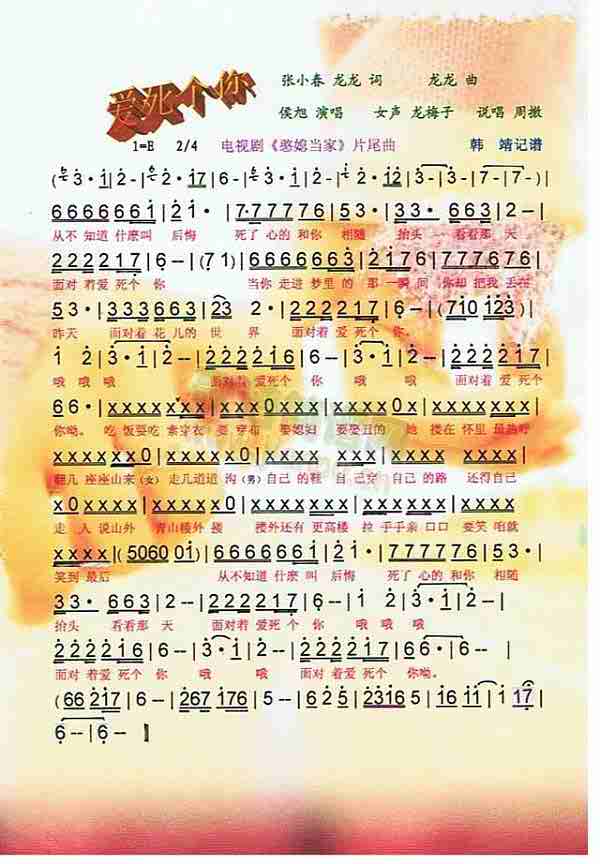 爱死个你
张小春 龙龙 词 龙龙 曲
侯旭 演唱 女声 龙梅子 说唱 周撒
1=E 2/4 电视剧《憨媳当家》片尾曲 韩 靖记谱
(3·i|2-|2-·i7|6-|6-|3·i|2-|2-|3-|3-|7-|7-)|
6666661|2i·|7·777776|53·|33· 663|2--|
从不 知道 什麽叫 后悔 死了 心的 和你 相随 抬头 看看那 天
2222217|6--|(71)|6666663|7777765|
面对 着爱 死个 你 当你 走进 梦里的 那一瞬间 你却 把我 丢在
53·|333663|23 2|2222217|6-|(7i0 i23)|
昨天 面对着 花儿的 世 界 面对着 爱 死个 你。
i 2|3·i|2--|222216|6-|3·i|2--|2222217|
哦 哦哦 哦 面对着 爱死个 你 哦 哦 面对着 爱死个
66·|xxxx xxx|xx0|xxxx|xxx|xxxx|xxxx|
你呦。 吃 饭要吃 要穿布 娶媳妇 要娶丑的 搂在 怀里
座座山来(女) 走几道道 沟(男)自己的鞋 自己穿 自己的 路 还得自己
走 人说山外 青山楼外 楼 楼外还有 更高楼 拉 手手亲 口口 要笑 咱就
xxxx|(5060 0i)|6666661|2i·|7777776|53·|
笑到 最后 从不知道 什麽 叫 后悔 死了 心的 和你 相随
33·|663|2--|2222217|6--|i 2|3·i|2--|
抬头 看看那 天 面对着 爱死 个 你 哦 哦哦 哦
2222216|6--|3·i|2--|2222217|6--|
面对 着爱死个 你 哦 哦 面对 着爱死个 你呦。
(66 2i7|6--|267 i76|5--|i6 2|2316 5|i6 i1|i 17|
6--|6--‖